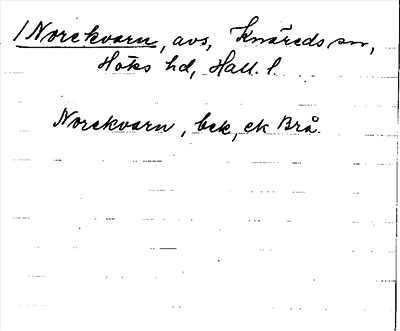 /Norekvarn, avs, Knäreds sn,
Höks hd, Hall. l.
Norekvarn, bek, ek Brå.